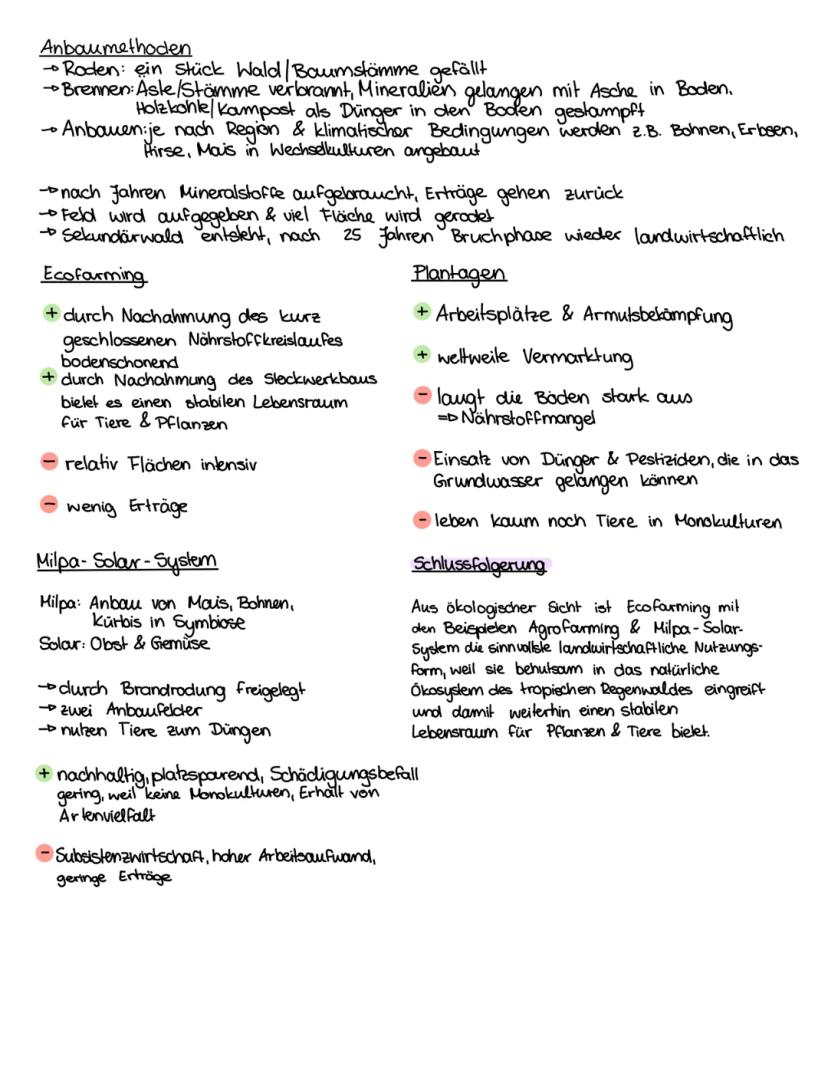 Anbaumethoden
→ Roden: ein Stück Wald/Baumstämme gefällt
→ Brennen: Äste/Stämme verbrannt, Mineralien gelangen mit Asche in Boden.
Holzkohle/Kompost als Dünger in den Boden gestampft
→ Anbauen: je nach Region & klimatischer Bedingungen werden z.B. Bohnen, Erbsen,
Hirse, Mais in Wechselkulturen angebaut
→ nach Jahren Mineralstoffe aufgebraucht, Erträge gehen zurück
→ Feld wird aufgegeben & viel Fläche wird gerodet
→ Sekundärwald entsteht, nach 25 Jahren Bruchphase wieder landwirtschaftlich
Ecofarming
+ durch Nachahmung des kurz
geschlossenen Nährstoffkreislaufes
bodenschonend
+ durch Nachahmung des Stockwerkbaus
bietet es einen stabilen Lebensraum
für Tiere & Pflanzen
- relativ Flächen intensiv
- wenig Erträge
Plantagen
+ Arbeitsplätze & Armutsbekämpfung
+ weltweite Vermarktung
- laugt die Böden stark aus
=> Nährstoffmangel
- Einsatz von Dünger & Pestiziden, die in das
Grundwasser gelangen können
- leben kaum noch Tiere in Monokulturen
Milpa-Solar-System
Milpa: Anbau von Mais, Bohnen,
Kürbis in Symbiose
Solar: Obst & Gemüse
→ durch Brandrodung freigelegt
→ zwei Anbaufelder
→ nutzen Tiere zum Düngen
+ nachhaltig, platzsparend, Schädigungsbefall
gering, weil keine Monokulturen, Erhalt von
Artenvielfalt
- Subsistenzwirtschaft, hoher Arbeitsaufwand,
geringe Erträge
Schlussfolgerung
Aus ökologischer Sicht ist Ecofarming mit
den Beispielen Agrofarming & Milpa-Solar-
System die sinnvollste landwirtschaftliche Nutzungs-
form, weil sie behutsam in das natürliche
Ökosystem des tropischen Regenwaldes eingreift
und damit weiterhin einen stabilen
Lebensraum für Pflanzen & Tiere bietet.